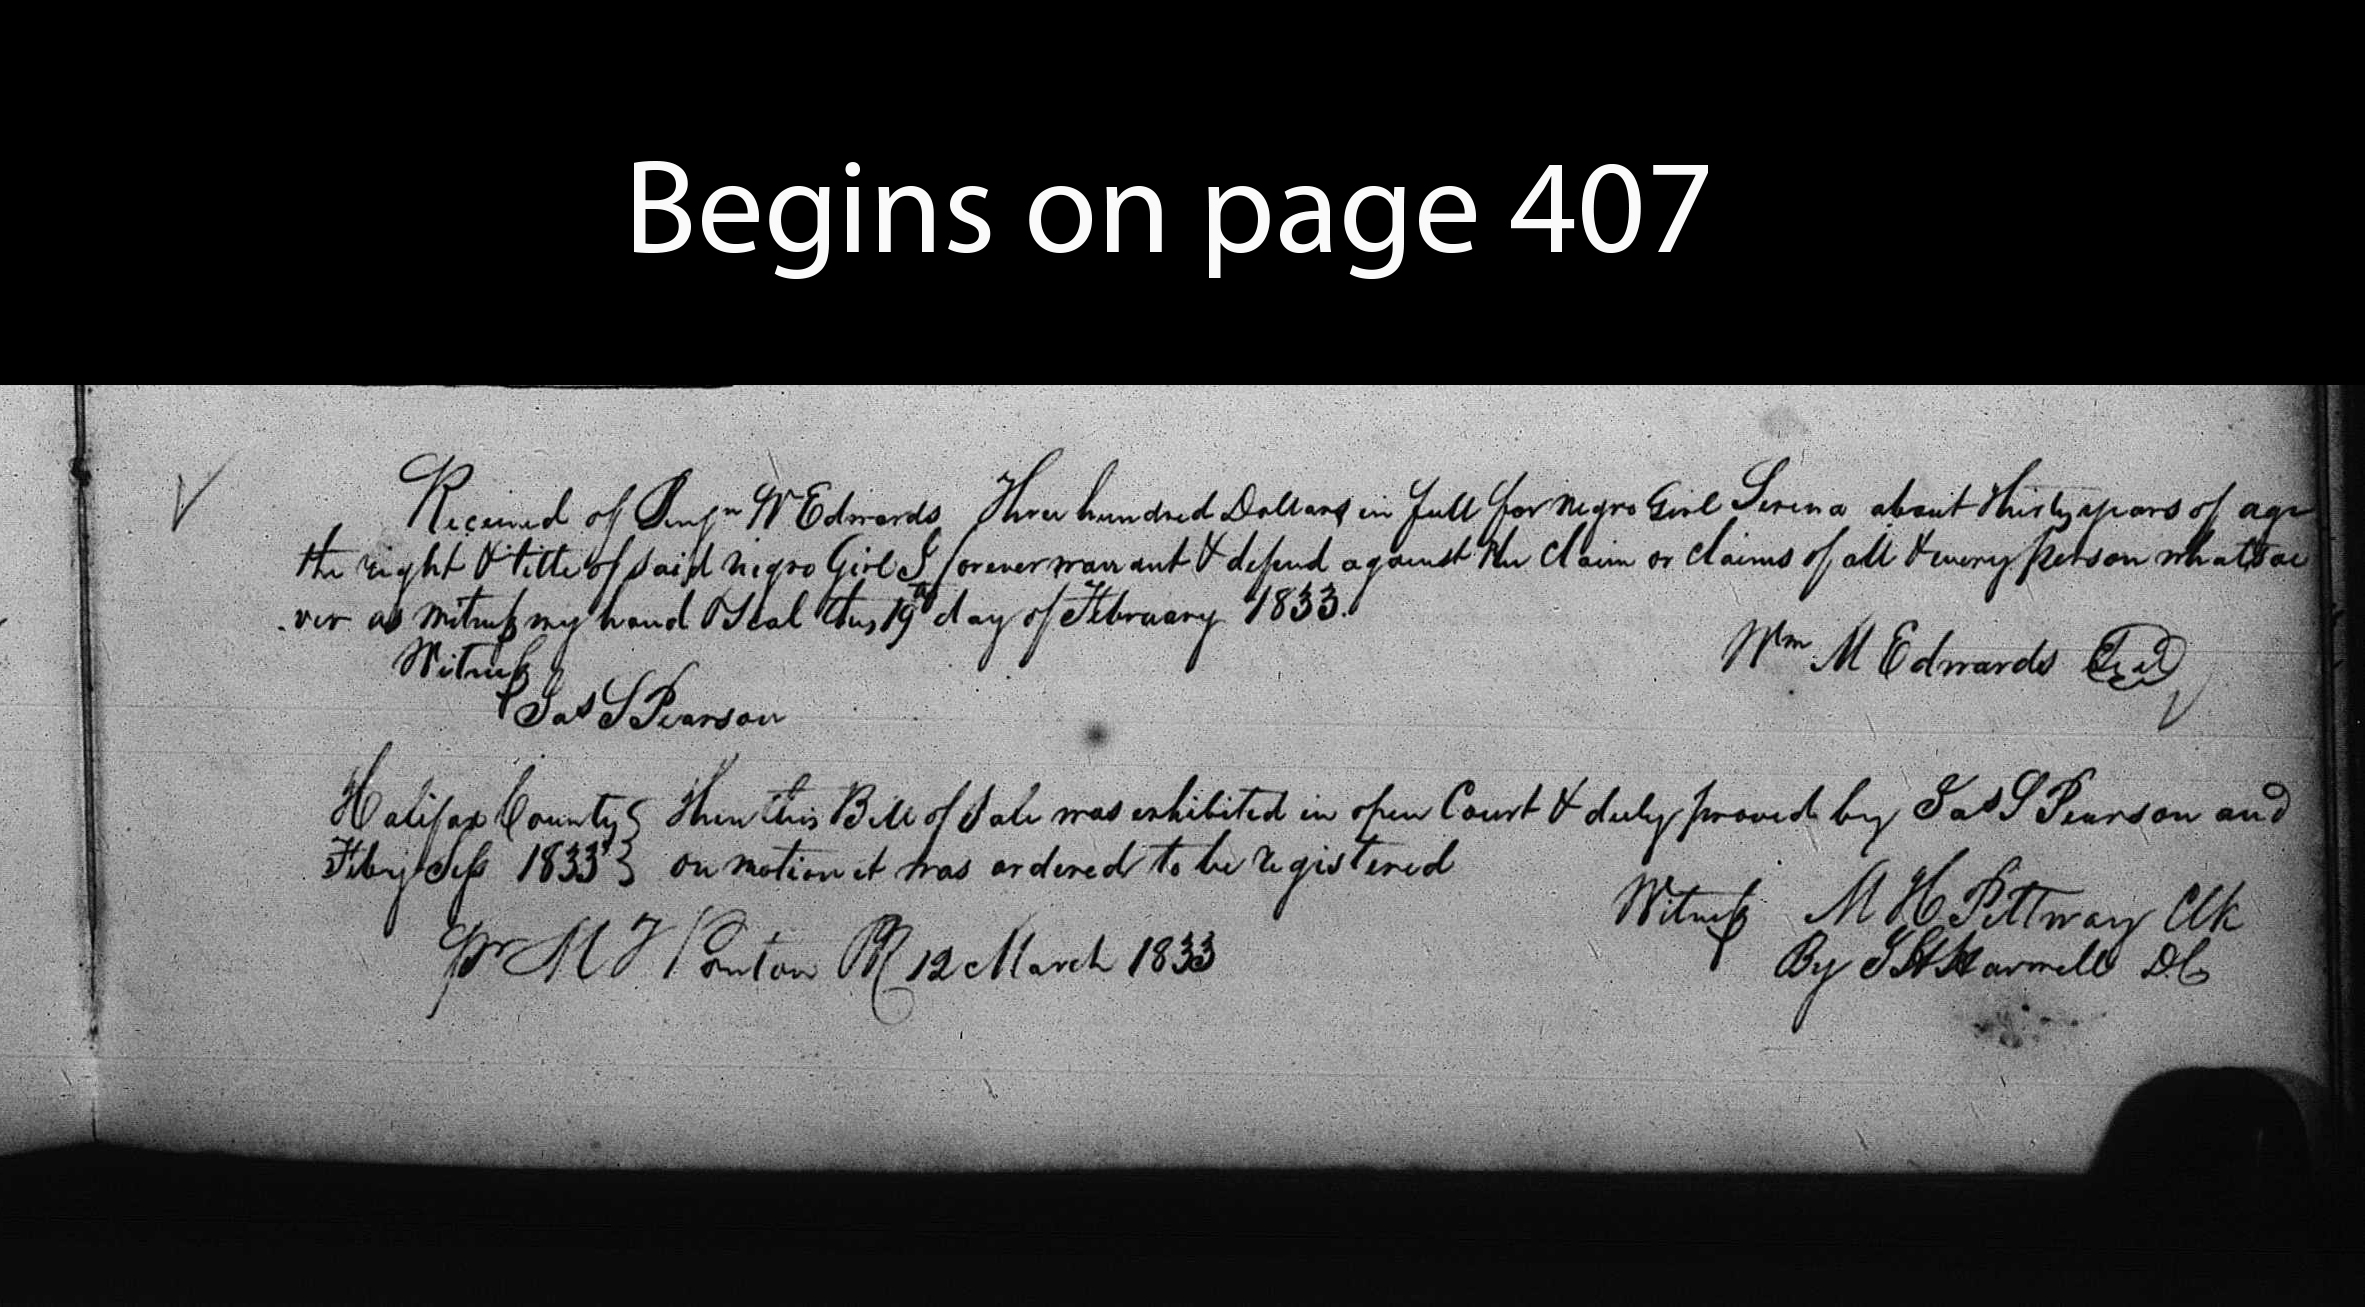 Begins on page 407
Received of Benjn W Edwards Three hundred Dollars in full for negro Girl Serena about thirty years of age
the right & title of said negro Girl I forever warrant & defend against the claim or claims of all & every person whatsoe
ver as witness my hand & Seal this 19th day of February 1833.
Wm M Edwards Seal
Witness
Jas S Pearson
Halifax County } Then this Bill of Sale was exhibited in open Court & duly proved by Jas S Pearson and
Feby Sess 1833 } on motion it was ordered to be registered
Witness M H Pettway Clk
pr M T Ponton PR 12 March 1833
By Harwell DC